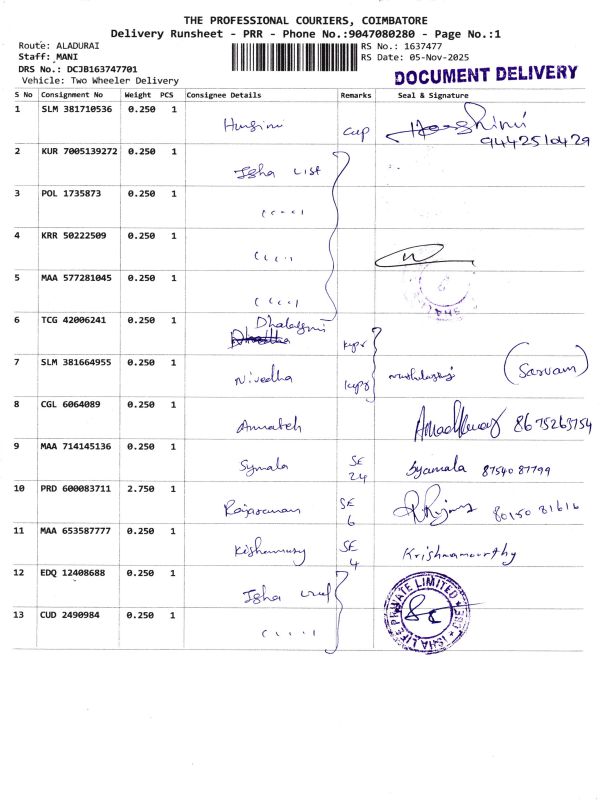 THE PROFESSIONAL COURIERS, COIMBATORE
Delivery Runsheet - PRR - Phone No.:9047080280 - Page No.:1
Route: ALADURAI
Staff: MANI
DRS No.: DCJB163747701
Vehicle: Two Wheeler Delivery
RS No.: 1637477
RS Date: 05-Nov-2025
DOCUMENT DELIVERY
S No Consignment No Weight PCS Consignee Details Remarks Seal & Signature
1 SLM 381710536 0.250 1
9442510429
2 KUR 7005139272 0.250 1 Isha
3 POL 1735873 0.250 1
4 KRR 50222509 0.250 1
5 MAA 577281045 0.250 1
6 TCG 42006241 0.250 1
7 SLM 381664955 0.250 1 Nivedha (Sarvam)
8 CGL 6064089 0.250 1
9 MAA 714145136 0.250 1 Symala SE 24 Syamala 87540 87799
10 PRD 600083711 2.750 1 SE 6 80150 81616
11 MAA 653587777 0.250 1 SE 4 Krishnamoorthy
12 EDQ 12408688 0.250 1 Isha
13 CUD 2490984 0.250 1
PRIVATE LIMITED